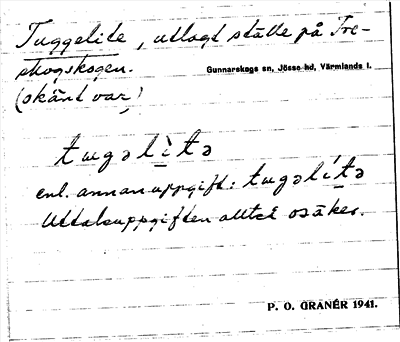 Tuggelite, utlagt ställe på Tre-
skogskogen.
Gunnarskogs sn, Jösse hd, Värmlands l.
(okänt var)
tɯgəlì̱tə
enl. annan uppgift: tɯgəlí̱tə
Uttalsuppgiften alltså osäker.
P. O. GRANÉR 1941.